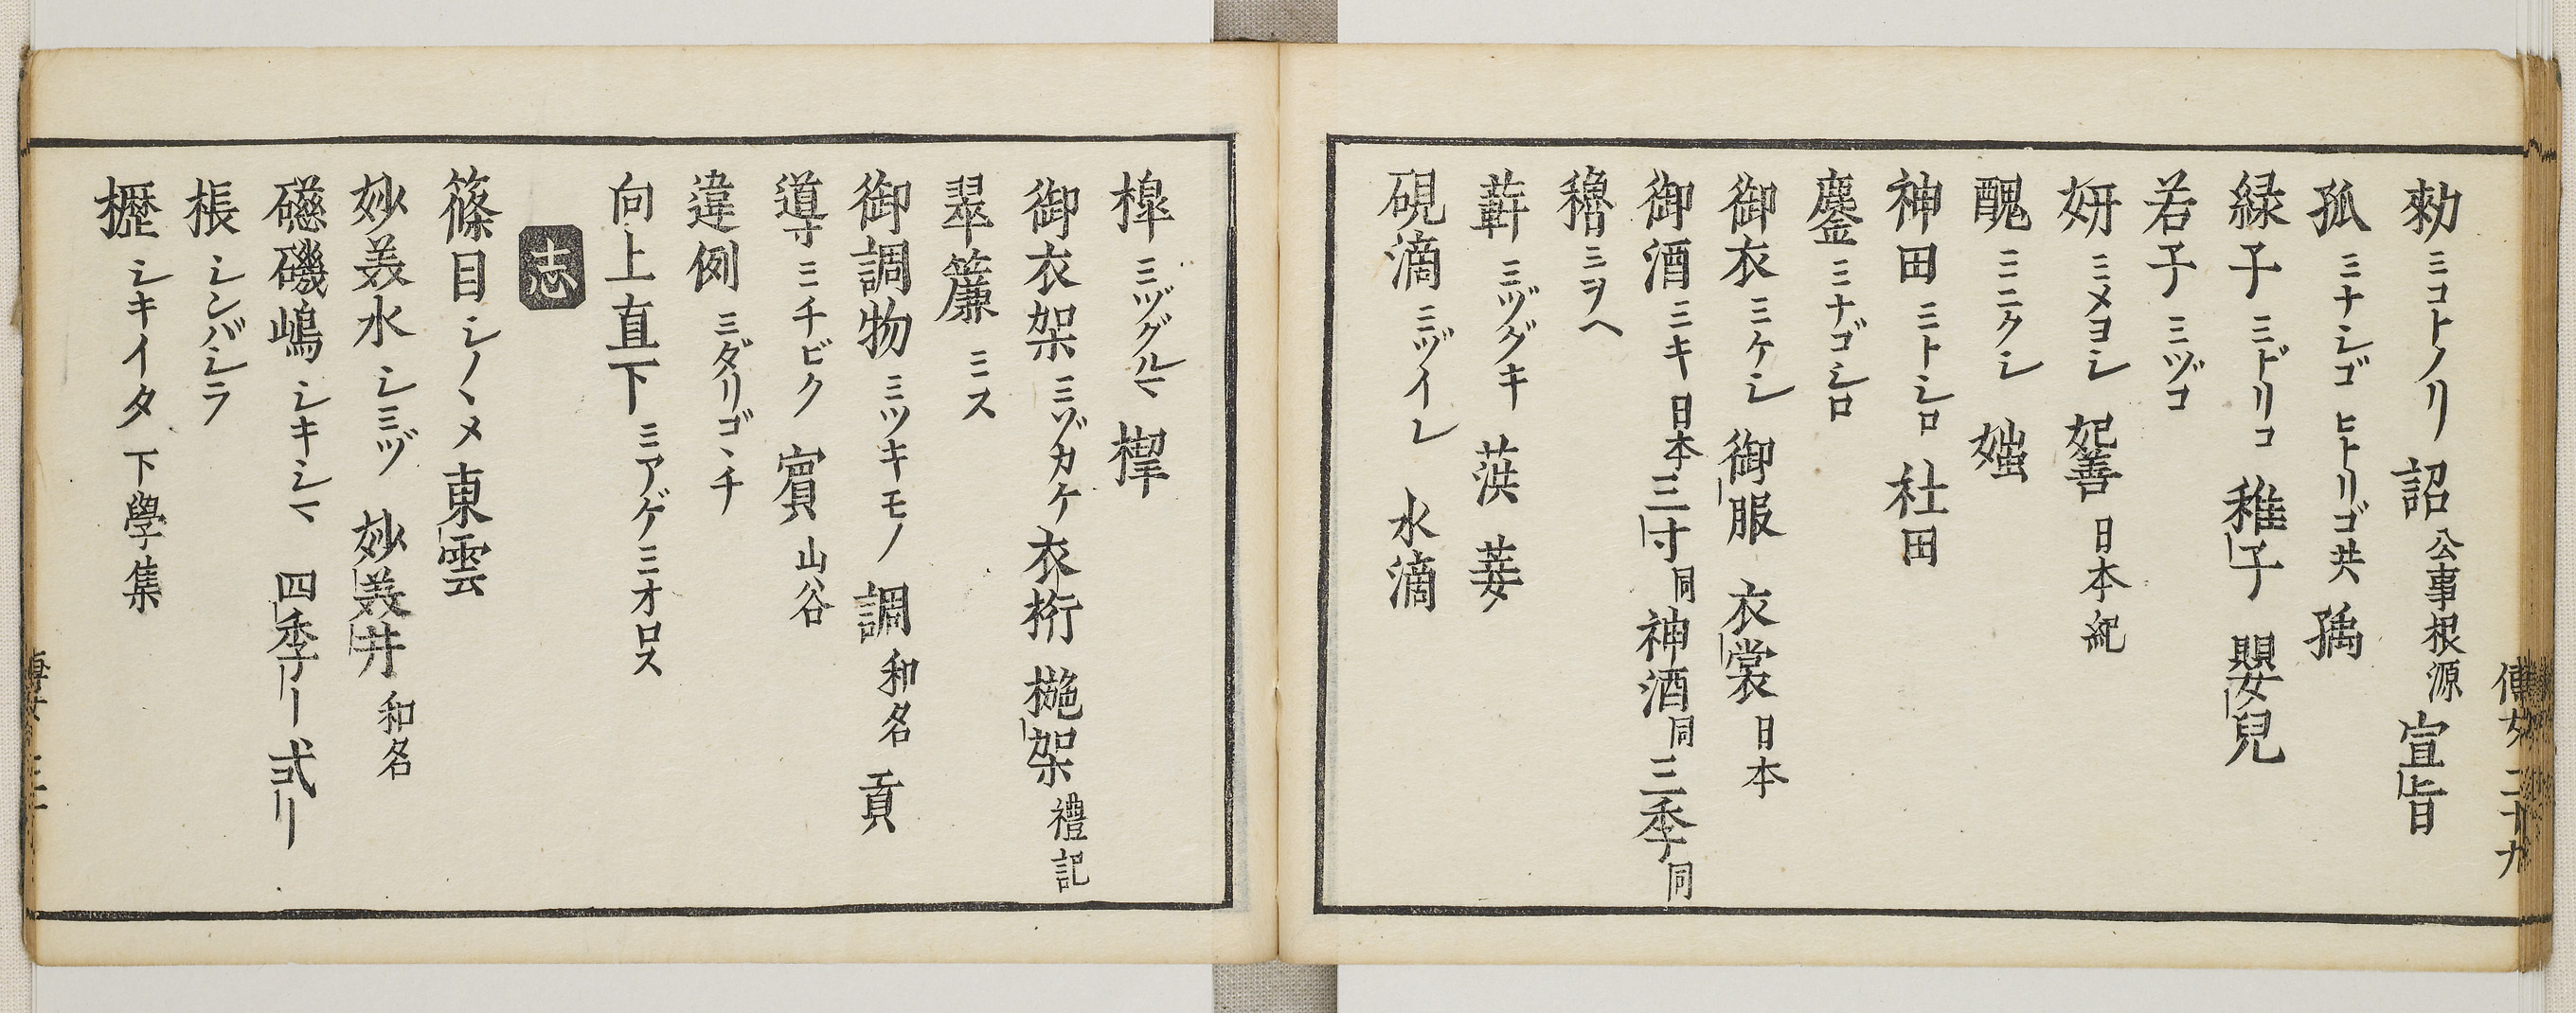 勅 ミコトノリ 詔 公事根源 宣旨
孤 ミナシゴ ヒトリゴ共 㺃
緑子 ミドリコ 稚子 嬰兒
若子 ミヅコ
妍 ミメヨシ 妃善 日本紀
醜 ミニクシ 媸
神田 ミトシロ 社田
鏖 ミナゴシロ
御衣 ミケシ 御服 衣裳 日本
御酒 ミキ 日本 三寸 同 神酒 同 三季 同
穭 ミヲヘ
ミヅグキ
硯滴 ミヅイレ 水滴
槹 ミヅグルマ
御衣架 ミゾカケ 衣桁 架 禮記
翠簾 ミス
御調物 ミツキモノ 調 和名 貢
導 ミチビク 賔 山谷
違例 ミダリゴヽチ
向上直下 ミアゲミオロス
志
篠目 シノヽメ 東雲
妙美水 シミヅ 妙美井 和名
礠磯嶋 シキシマ 四季〡 弐〢
棖 シンバシラ
櫪 シキイタ 下學集